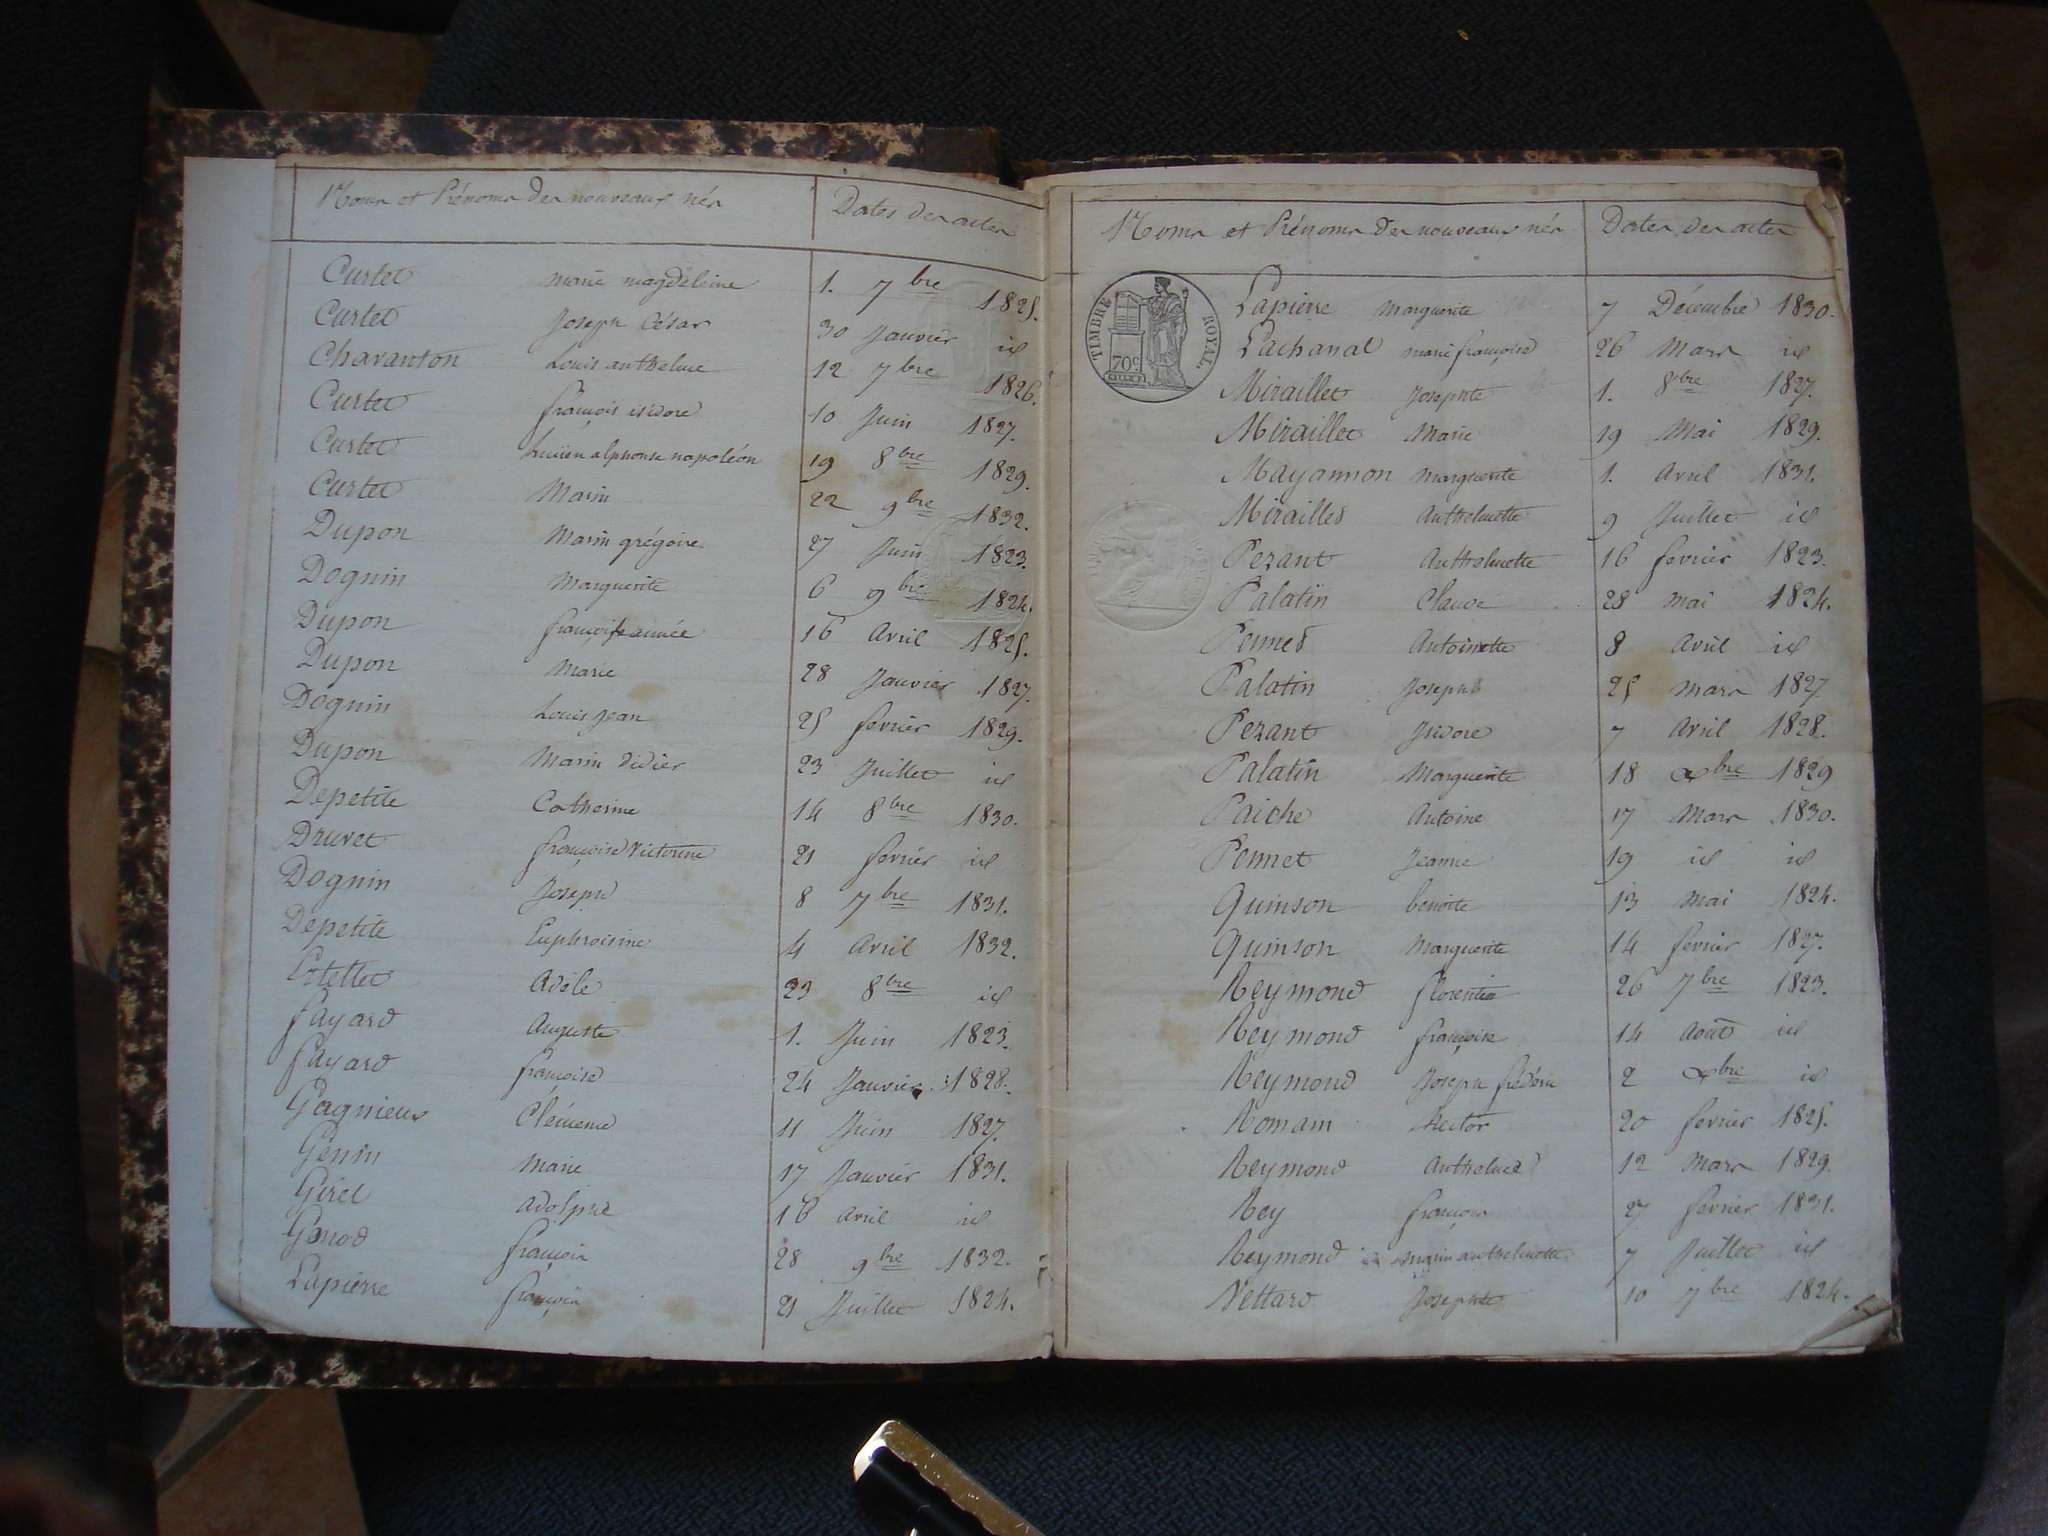 Noms et Prénoms des nouveaux nés Dates des actes
Curtet marie magdeleine 1. 7bre 1825.
Curtet Joseph César 30 Janvier id
Chavanton Louis anthelme 12 7bre 1826.
Curtet françois isidore 10 Juin 1827.
Curtet Lucien alphonse napoléon 19 8bre 1829.
Curtet Marin 22 9bre 1832.
Dupon Marin grégoire 27 Juin 1823.
Doguin Marguerite 6 9bre 1824.
Dupon 16 Avril 1825.
Dupon Marie 28 Janvier 1827.
Doguin Louis Jean 25 fevrier 1829.
Dupon Marin didier 23 Juillet id
Depetite Catherine 14 8bre 1830.
Druvet françoise Victorine 21 fevrier id
Doguin Joseph 8 7bre 1831.
Depetite Euphroisine 4 Avril 1832.
Estellet Adèle 23 8bre id
fayard Auguste 1. Juin 1823.
fayard françoise 24 Janvier 1828.
Gagnieux Clémence 11 Juin 1827.
Genin Marie 17 Janvier 1831.
Girel Adolphe 16 Avril id
Genod françois 28 9bre 1832.
Lapierre françois 21 Juillet 1824.
Noms et Prénoms des nouveaux nés Dates des actes
TIMBRE ROYAL
70c
Lapierre Marguerite 7 Décembre 1830.
Lachanal marie françoise 26 Mars id
Miraillet Josephte 1. 8bre 1827.
Miraillet Marie 19 Mai 1829.
Mayannon Marguerite 1. Avril 1831.
Mirailled Anthelmette 9 Juillet id
Pezant Anthelmette 16 fevrier 1823.
Palatin Claude 28 Mai 1824.
Penned Antoinette 8 Avril id
Palatin Joseph 25 Mars 1827
Pezant Isidore 7 Avril 1828.
Palatin Marguerite 18 Xbre 1829
Paiche Antoine 17 Mars 1830.
Pennet Jeanne 19 id id
Quinson benoite 13 Mai 1824.
Quinson Marguerite 14 fevrier 1827.
Reymond florentin 26 7bre 1823.
Reymond françoise 14 Août id
Reymond Joseph frédéric 2 Xbre id
Romain Hector 20 fevrier 1825.
Reymond Anthelme 12 Mars 1829.
Rey françois 27 fevrier 1831.
Reymond marie anthelmette 7 Juillet id
Vettard Josephte 10 7bre 1824.